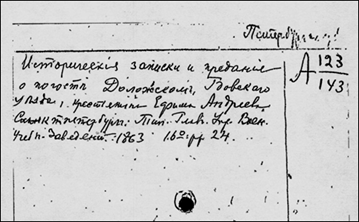 Петербург
Историческія записки и преданіе
о погостѣ Доложскомъ, Гдовскаго
уѣзда, протоіерея Ефима Андреев.
Санктпетербургъ. Тип. Глав. Упр. Воен.
Учебн. Заведен. 1863 16º. pp 24.
А 123
143